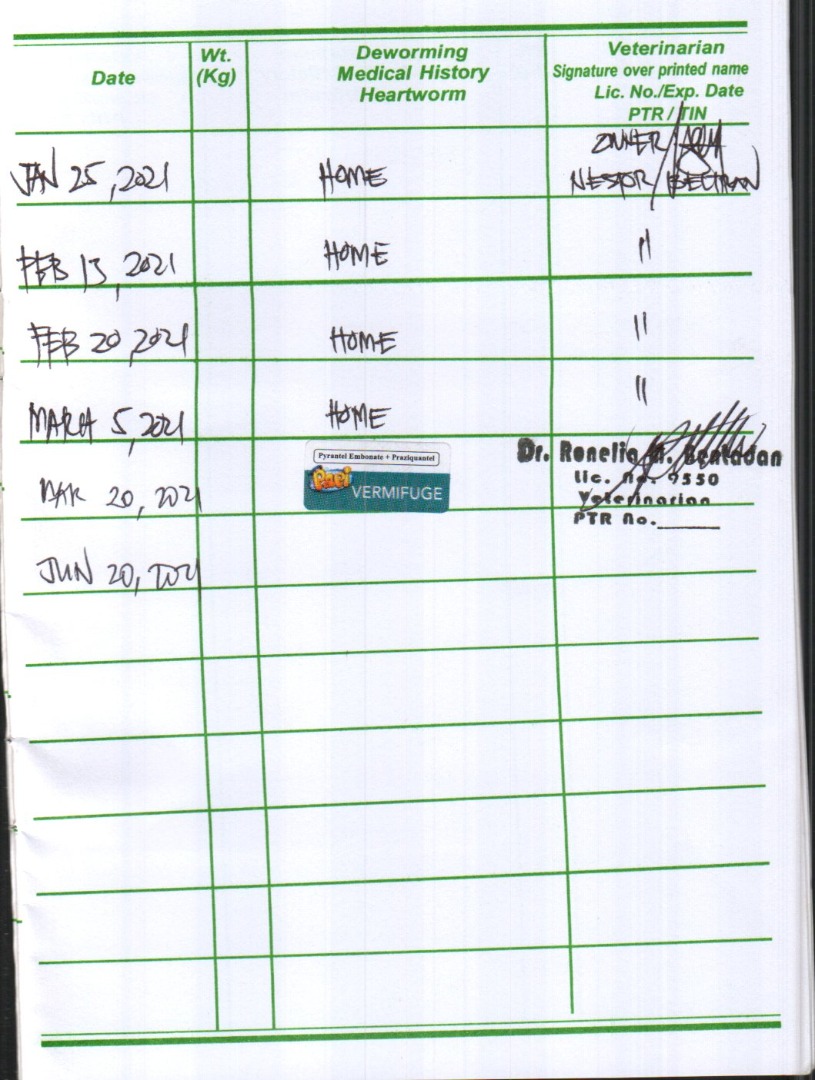 Date
Wt.
(Kg)
Deworming
Medical History
Heartworm
Veterinarian
Signature over printed name
Lic. No./Exp. Date
PTR / TIN
JAN 25, 2021
HOME
OWNER/
NESTOR BELTRAN
FEB 13, 2021
HOME
"
FEB 20, 2021
HOME
"
MARCH 5, 2021
HOME
"
MAR 20, 2021
Pyrantel Embonate + Praziquantel
Papi
VERMIFUGE
Dr. Ronelio
Lic. no. 9550
Veterinarian
PTR no.
JUN 20, 2021